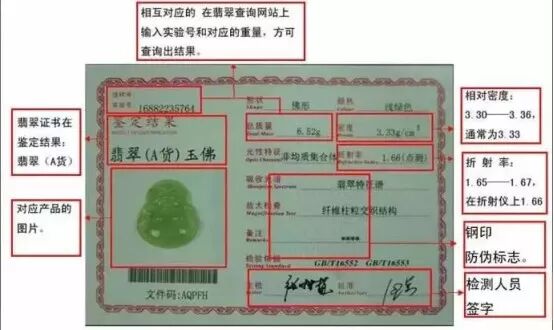 相互对应的 在翡翠查询网站上
输入实验号和对应的重量，方可
查询出结果。
翡翠证书在
鉴定结果：
翡翠（A货）
对应产品的
图片。
16882235764
鉴定结果
翡翠(A货)玉佛
文件码:AQPFH
形状
佛形
颜色
浅绿色
总质量
Total Mass
6.52g
密度
3.33g/cm³
光性特征
非均质集合体
折射率
1.66(点测)
吸收光谱
翡翠特征谱
放大检查
纤维柱粒交织结构
备注
Remarks
****
检验依据
GB/T16552 GB/T16553
主检
批准
相对密度：
3.30——3.36，
通常为3.33
折射率：
1.65——1.67，
在折射仪上1.66
钢印
防伪标志。
检测人员
签字